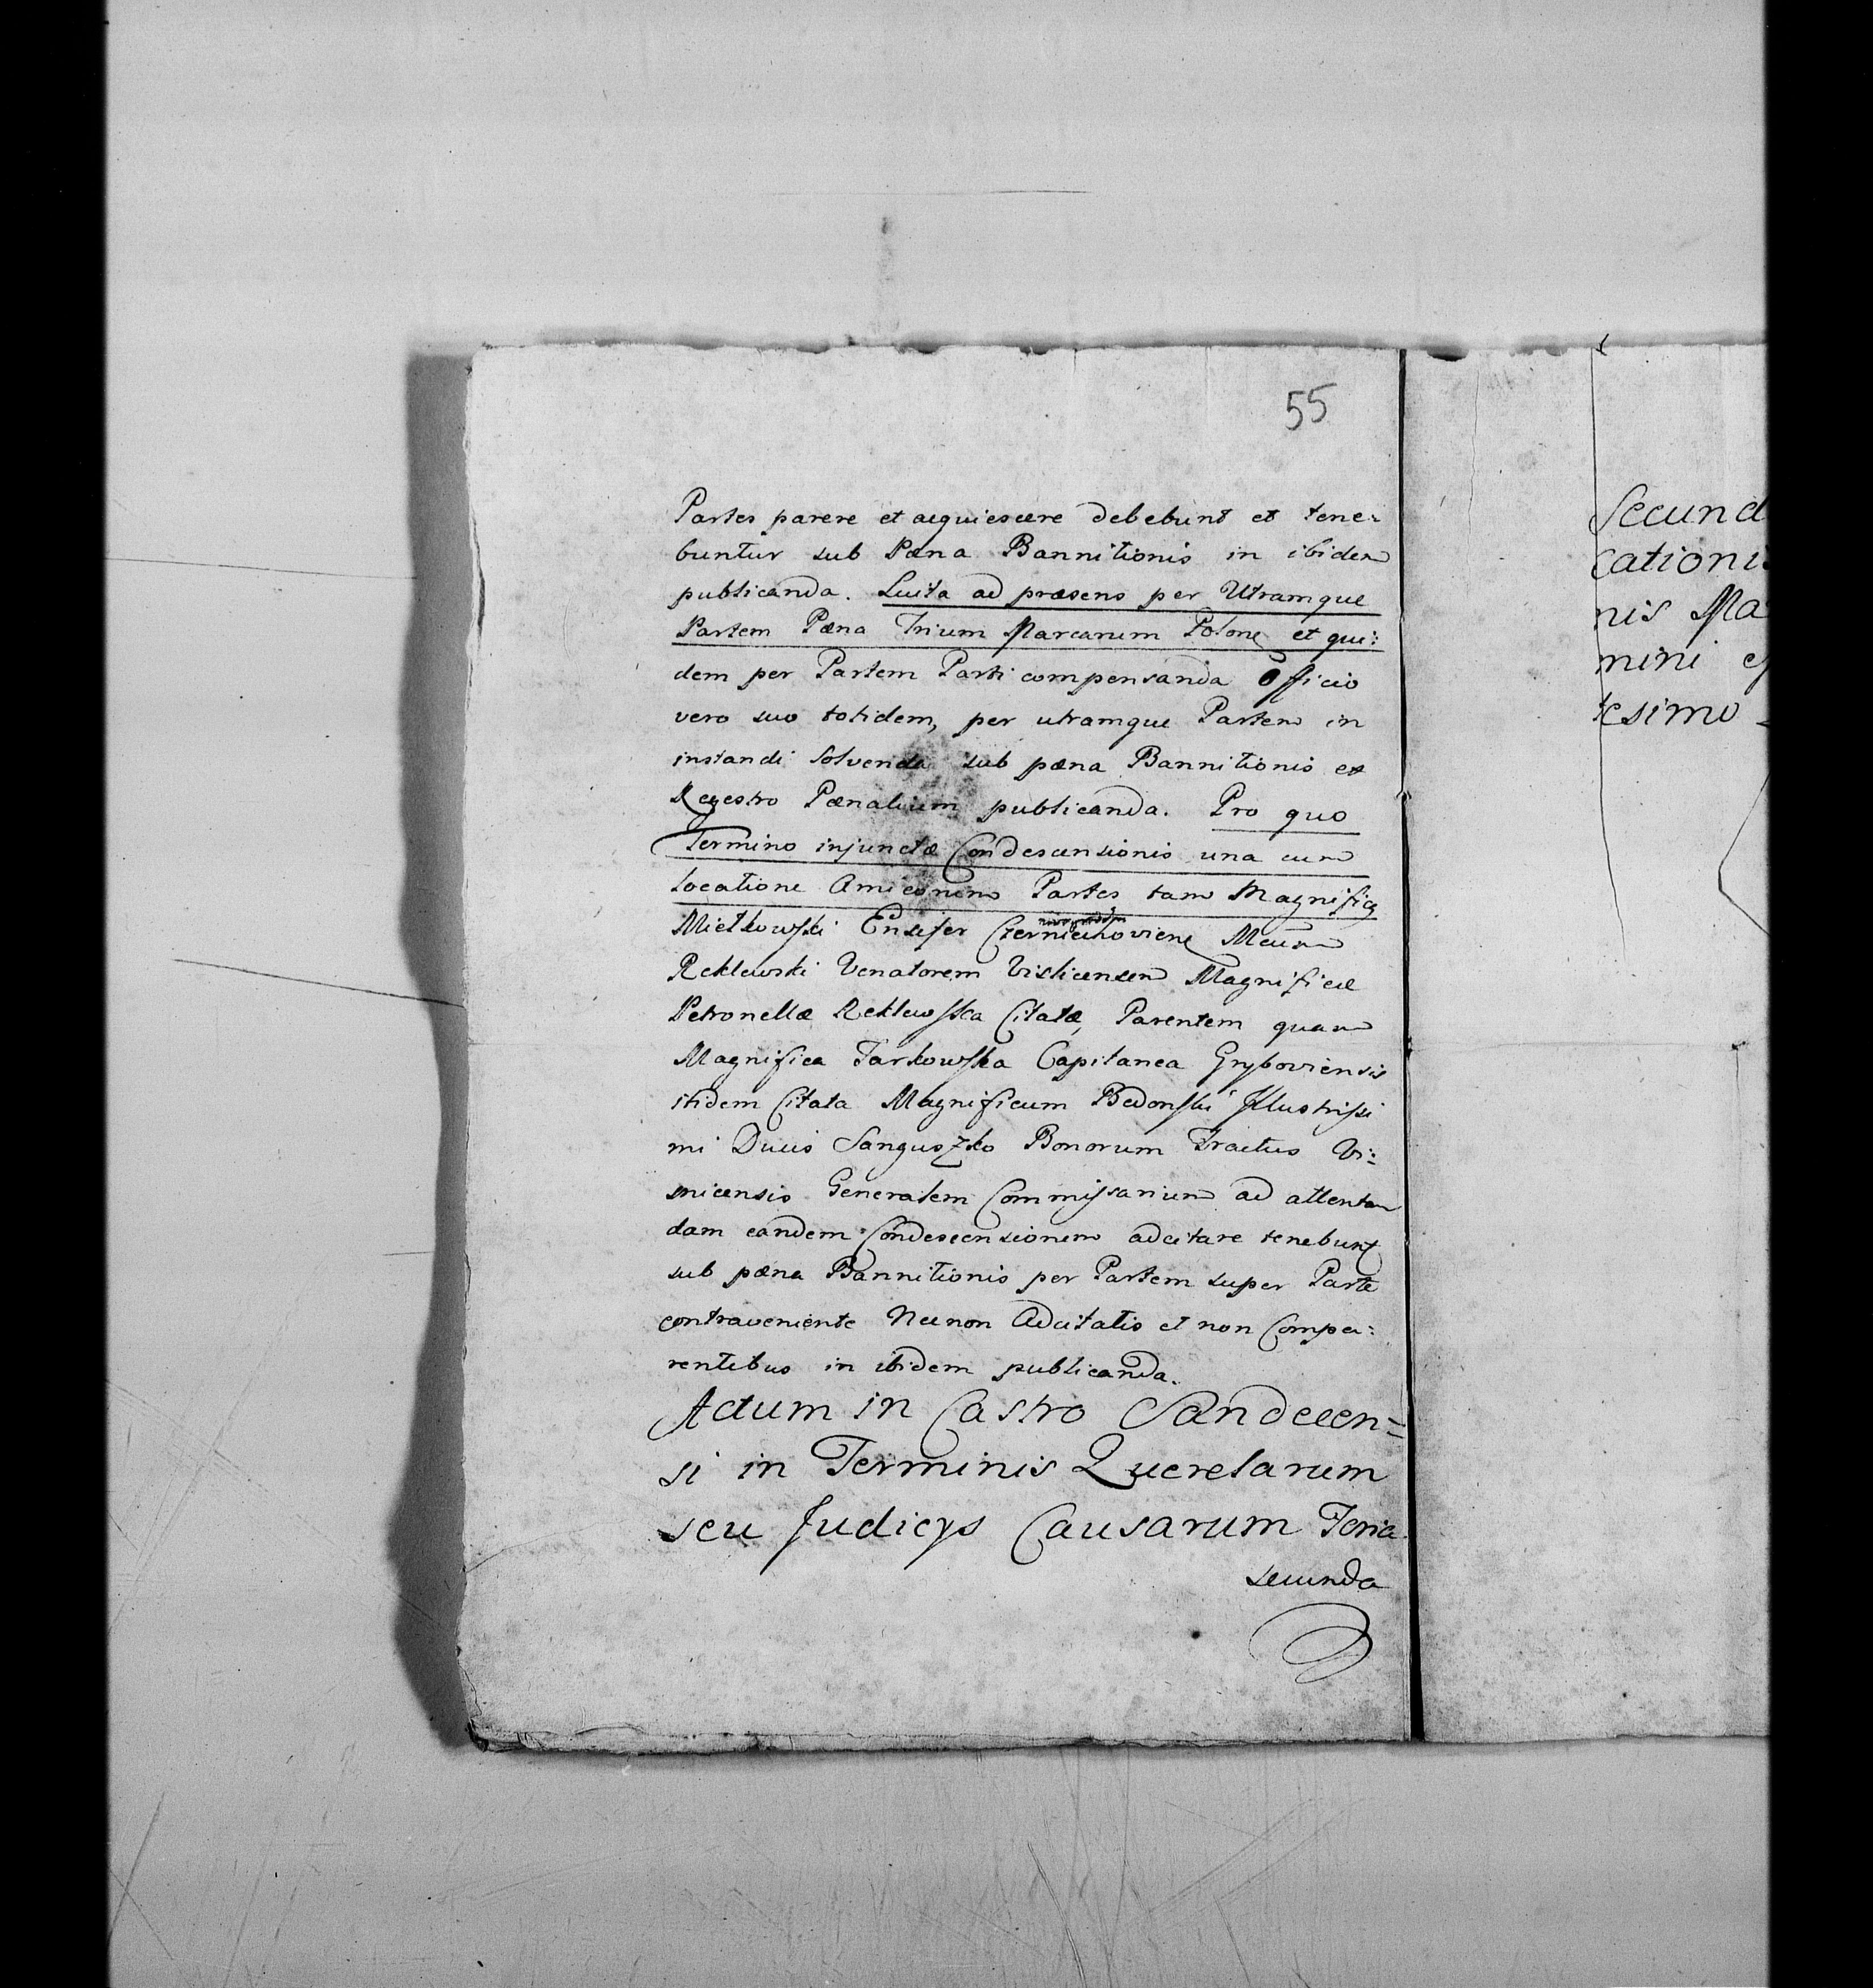 55
Partes parere et acquiescere debebunt et tene-
buntur sub Pæna Bannitionis in ibidem
publicanda. Luita ad præsens per Utramque
Partem Pæna Trium Marcarum Polone et qui-
dem per Partem Parti compensanda Officio
vero suo totidem, per utramque Partem in
instanti Solvenda sub pæna Bannitionis ex
Regestro Pænalium publicanda. Pro quo
Termino injunctæ Condescensionis una cum
locatione Amicorum Partes tam Magnificq
Mietkowski Ensifer Czerniechoviens Mcum
Reklewski Venatorem Visliciensem Magnificæ
Petronellæ Reklewska Citatæ, Parentem quam
Magnifica Tarkowska Capitanea Gryboviensis
itidem Citata Magnificum Bedonski Illustrissi
mi Ducis Sanguszko Bonorum Tractus Vi-
snicensis Generalem Commissarium ad attentan
dam eandem Condescensionem adcitare tenebunt
sub pæna Bannitionis per Partem super Parte
contraveniente Necnon Adcitatis et non Compa-
rentibus in ibidem publicanda.
Actum in Castro Sandecen=
si in Terminis Querelarum
seu Judicys Causarum Feria
secunda
Secund
cationis
nis Ma
mini
tesimo